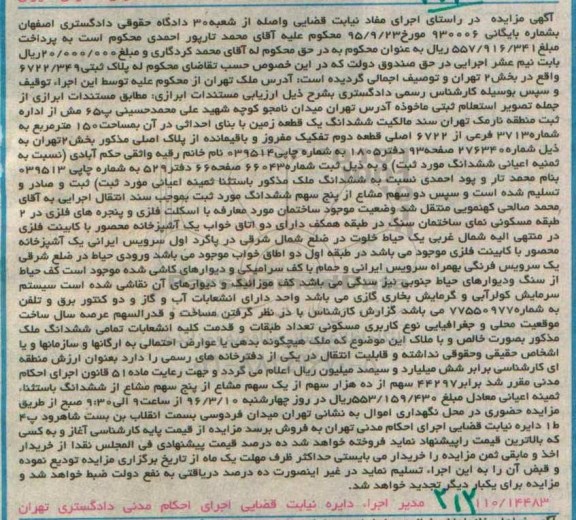 آگهی مزایده در راستای اجرای مفاد نیابت قضایی واصله از شعبه۳۰ دادگاه حقوقی دادگستری اصفهان
بشماره بایگانی ۹۳۰۰۰۶ مورخ۹۵/۹/۲۳ محکوم علیه آقای محمد تارپور احمدی محکوم است به پرداخت
مبلغ۵۵۷/۹۱۶/۳۴۱ریال به عنوان محکوم به در حق محکوم له آقای محمد کردگاری و مبلغ۲۰/۰۰۰/۰۰۰ریال
بابت نیم عشر اجرایی در حق صندوق دولت که در این خصوص حسب تقاضای محکوم له پلاک ثبتی۶۷۲۲/۳۴۹
واقع در بخش۲ تهران و توصیف اجمالی گردیده است: آدرس ملک تهران از محکوم علیه توسط این اجرا، توقیف
و سپس بوسیله کارشناس رسمی دادگستری بشرح ذیل ارزیابی مستندات ابرازی: مطابق مستندات ابرازی از
جمله تصویر استعلام ثبتی ماخوذه آدرس تهران میدان نامجو کوچه شهید علی محمدحسینی پ۶۵ مش از اداره
ثبت منطقه نارمک تهران سند مالکیت ششدانگ یک قطعه زمین با بنای احداثی در آن بمساحت۱۵۰ مترمربع به
شماره۳۷۱۳ فرعی از ۶۷۲۲ اصلی قطعه دوم تفکیک مفروز و باقیمانده از پلاک اصلی مذکور بخش۲تهران به
ذیل شماره۲۷۶۳۴۰ صفحه۹۳ دفتر۱۸۰۵ به شماره چاپی۰۳۹۵۱۴ نام خانم رقیه واثقی حکم آبادی (نسبت به
ثمنیه اعیانی ششدانگ مورد ثبت) و به ذیل ثبت شماره۶۶۰۴۳ صفحه۶۶ دفتر۵۲۹ به شماره چاپی ۰۳۹۵۱۳
بنام محمد تار و پود احمدی نسبت به ششدانگ ملک مذکور باستثنا ثمینه اعیانی مورد ثبت) ثبت و صادر و
تسلیم شده است و سپس دو سهم مشاع از پنج سهم ششدانگ مورد ثبت بموجب سند انتقال اجرایی به آقای
محمد صالحی کهنمویی منتقل شد وضعیت موجود ساختمان مورد معارفه با اسکلت فلزی و پنجره های فلزی در ۲
طبقه مسکونی نمای ساختمان سنگ در طبقه همکف دارای دو اتاق خواب یک آشپزخانه محصور با کابینت فلزی
در منتهی الیه شمال غربی یک حیاط خلوت در ضلع شمال شرقی در پاگرد اول سرویس ایرانی یک آشپزخانه
محصور با کابینت فلزی موجود می باشد در طبقه اول دو اطاق خواب موجود می باشد ورودی حیاط در ضلع شرقی
یک سرویس فرنگی بهمراه سرویس ایرانی و حمام با کف سرامیکی و دیوارهای کاشی شده موجود است کف حیاط
از سنگ ودیوارهای حیاط جنوبی نیز سنگی می باشد کف موزائیک و دیوارهای آن نقاشی شده است سیستم
سرمایش کولرآبی و گرمایش بخاری گازی می باشد واحد دارای انشعابات آب و گاز و دو کنتور برق و تلفن
به شماره۷۷۵۵۰۹۷۷ می باشد گزارش کارشناس با در نظر گرفتن مساحت و قدرالسهم عرصه سال ساخت
موقعیت محلی و جغرافیایی نوع کاربری مسکونی تعداد طبقات و قدمت کلیه انشعابات تمامی ششدانگ ملک
مذکور بصورت خالص و با ملاک این موضوع که ملک هیچگونه بدهی یا عوارض احتمالی به ارگانها و سازمانها و یا
اشخاص حقیقی وحقوقی نداشته و قابلیت انتقال در یکی از دفترخانه های رسمی را دارد بعنوان ارزش منطقه
ای کارشناسی برابر شش میلیارد و سیصد میلیون ریال اعلام می گردد و جهت رعایت ماده۵۱ قانون اجرای احکام
مدنی مقرر شد برابر۴۴۲۹۷ سهم از ده هزار سهم از یک سهم مشاع از پنج سهم مشاع از ششدانگ باستثنا،
ثمینه اعیانی معادل مبلغ ۵۵۳/۱۵۹/۴۳۰ریال در روز چهارشنبه ۹۶/۳/۱۰ از ساعت۹ الی۹:۳۰ صبح از طریق
مزایده حضوری در محل نگهداری اموال به نشانی تهران میدان فردوسی بسمت انقلاب بن بست شاهرود پ۴
ط۱ دایره نیابت قضایی اجرای احکام مدنی تهران به فروش برسد مزایده از قیمت پایه کارشناسی آغاز و به کسی
که بالاترین قیمت راپیشنهاد نماید فروخته خواهد شد ده درصد قیمت پیشنهادی فی المجلس نقدا از خریدار
اخذ و مابقی ثمن مزایده را خریدار می بایستی حداکثر ظرف مهلت یک ماه از تاریخ برگزاری مزایده تودیع نموده
و قبض آن را به این اجراء تسلیم نماید در غیر اینصورت ده درصد دریافتی به نفع دولت ضبط خواهد شد و
مزایده برای یکبار دیگر تجدید خواهد شد.
۱۱۰/۱۴۴۸۳ ۲۱۲ مدیر اجراء دایره نیابت قضایی اجرای احکام مدنی دادگستری تهران